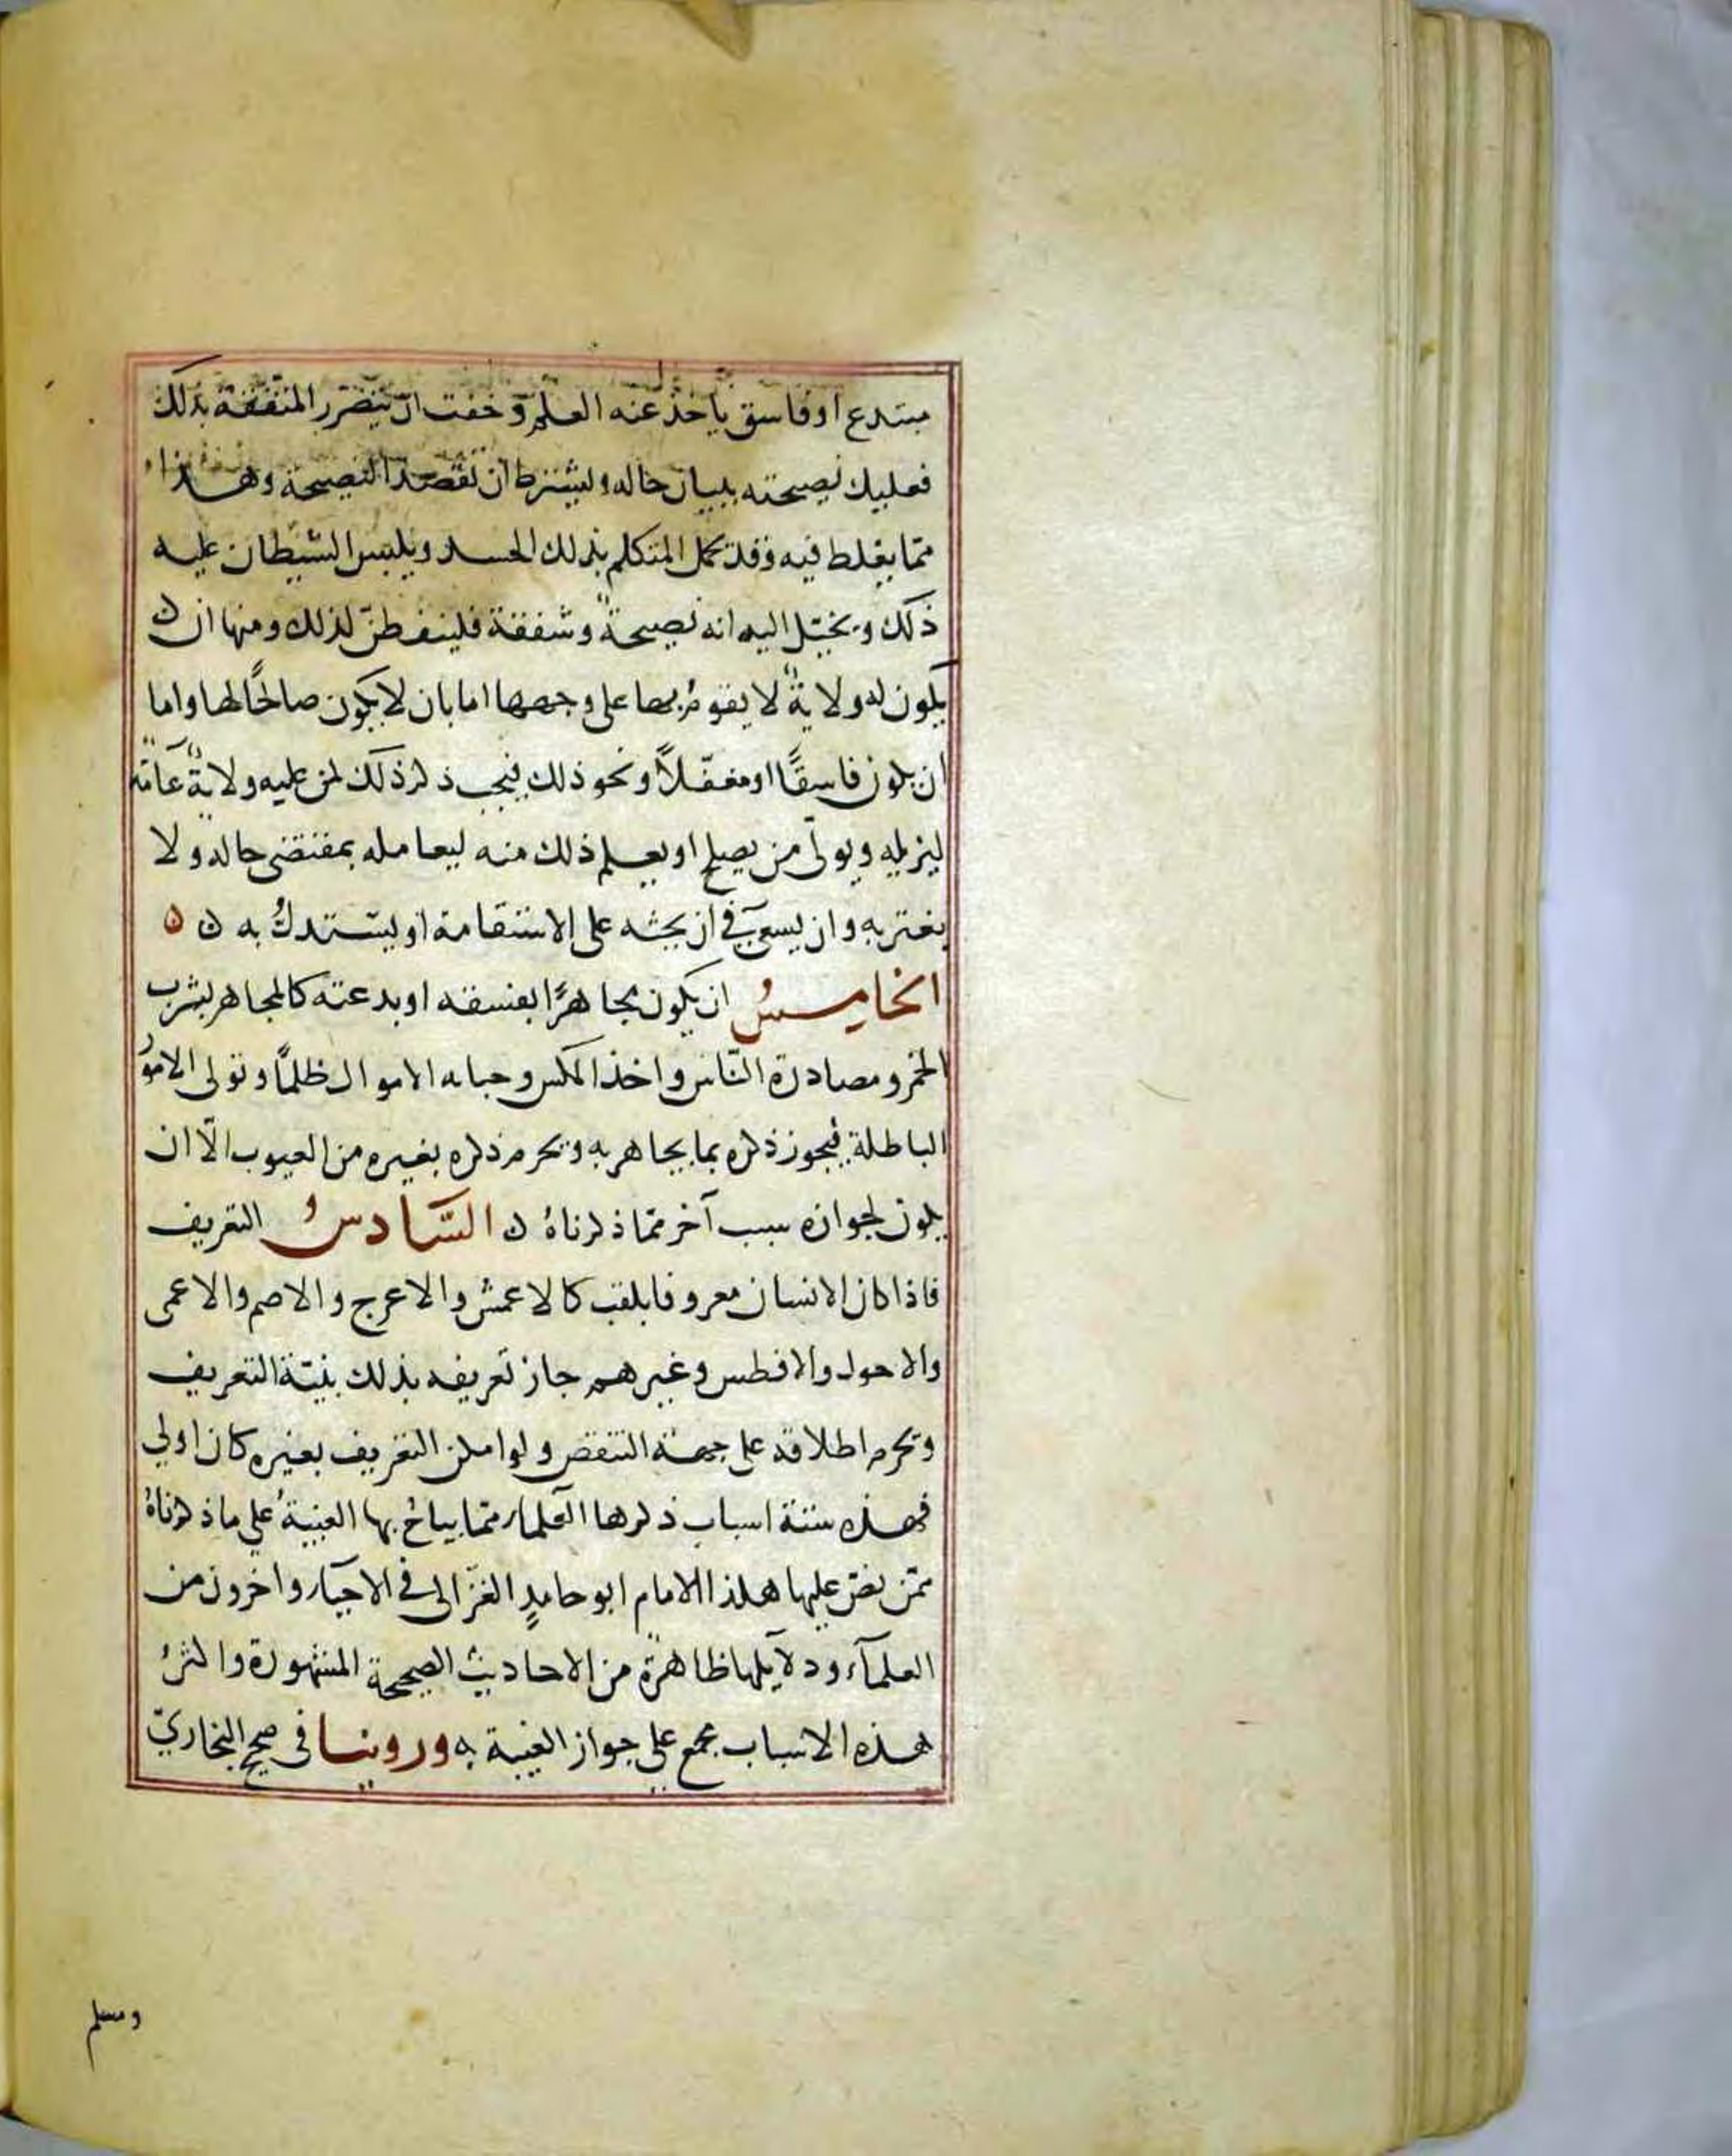 مبتدع او فاسق يأخذ عنه العلم و خفت ان يتضرر المتفقه بذلك
فعليك نصيحته ببيان حاله و يشترط ان تقصد النصيحة وهذا
ممّا يغلط فيه وقد يحمل المتكلم بذلك الحسد ويلبس الشيطان عليه
ذلك ويخيّل اليه انه نصيحةٌ وشفقة فليتفطنّ لذلك ومنها ان
يكون له ولايةٌ لا يقومُ بها على وجهها اما بان لا يكون صالحًا لها واما
ان يكون فاسقًا او مغفّلًا ونحو ذلك فيجب ذكر ذلك لمن عليه ولايةٌ عامّة
ليزيله ويولى من يصلح او يعلم ذلك منه ليعامله بمقتضى حاله ولا
يغتر به وان يسعى في ان يحثه على الاستقامة او يستبدلُ به ن ه
الخامسُ ان يكون مجاهرًا بفسقه او بدعته كالمجاهر بشرب
الخمر ومصادرة النّاس واخذ المكس وجبايه الاموال ظلمًا وتولى الامورُ
الباطلة فيجوز ذكره بما يجاهر به ويحرم ذكره بغيره من العيوب الّا ان
يكون لجوازه سبب آخر ممّا ذكرناهُ ن السّادسُ التعريف
فاذا كان الانسان معروفا بلقب كالاعمش والاعرج والاصم والاعمى
والاحول والافطس وغيرهم جاز تعريفه بذلك بنيّة التعريف
ويحرم اطلاقه على جهة التنقص ولو امكن التعريف بغيره كان اولى
فهذه ستة اسباب ذكرها العلماء ممّا يباحُ بها الغيبةُ على ما ذكرناهُ
ممّن نصّ عليها هكذا الامام ابو حامدٍ الغزّالى فى الاحيآء واخرون من
العلمآء ودلآيلها ظاهرة من الاحاديث الصحيحة المشهورة واكثرُ
هذه الاسباب مجمع على جواز الغيبة به وروينا فى صحيح البخاريّ
ومسلم